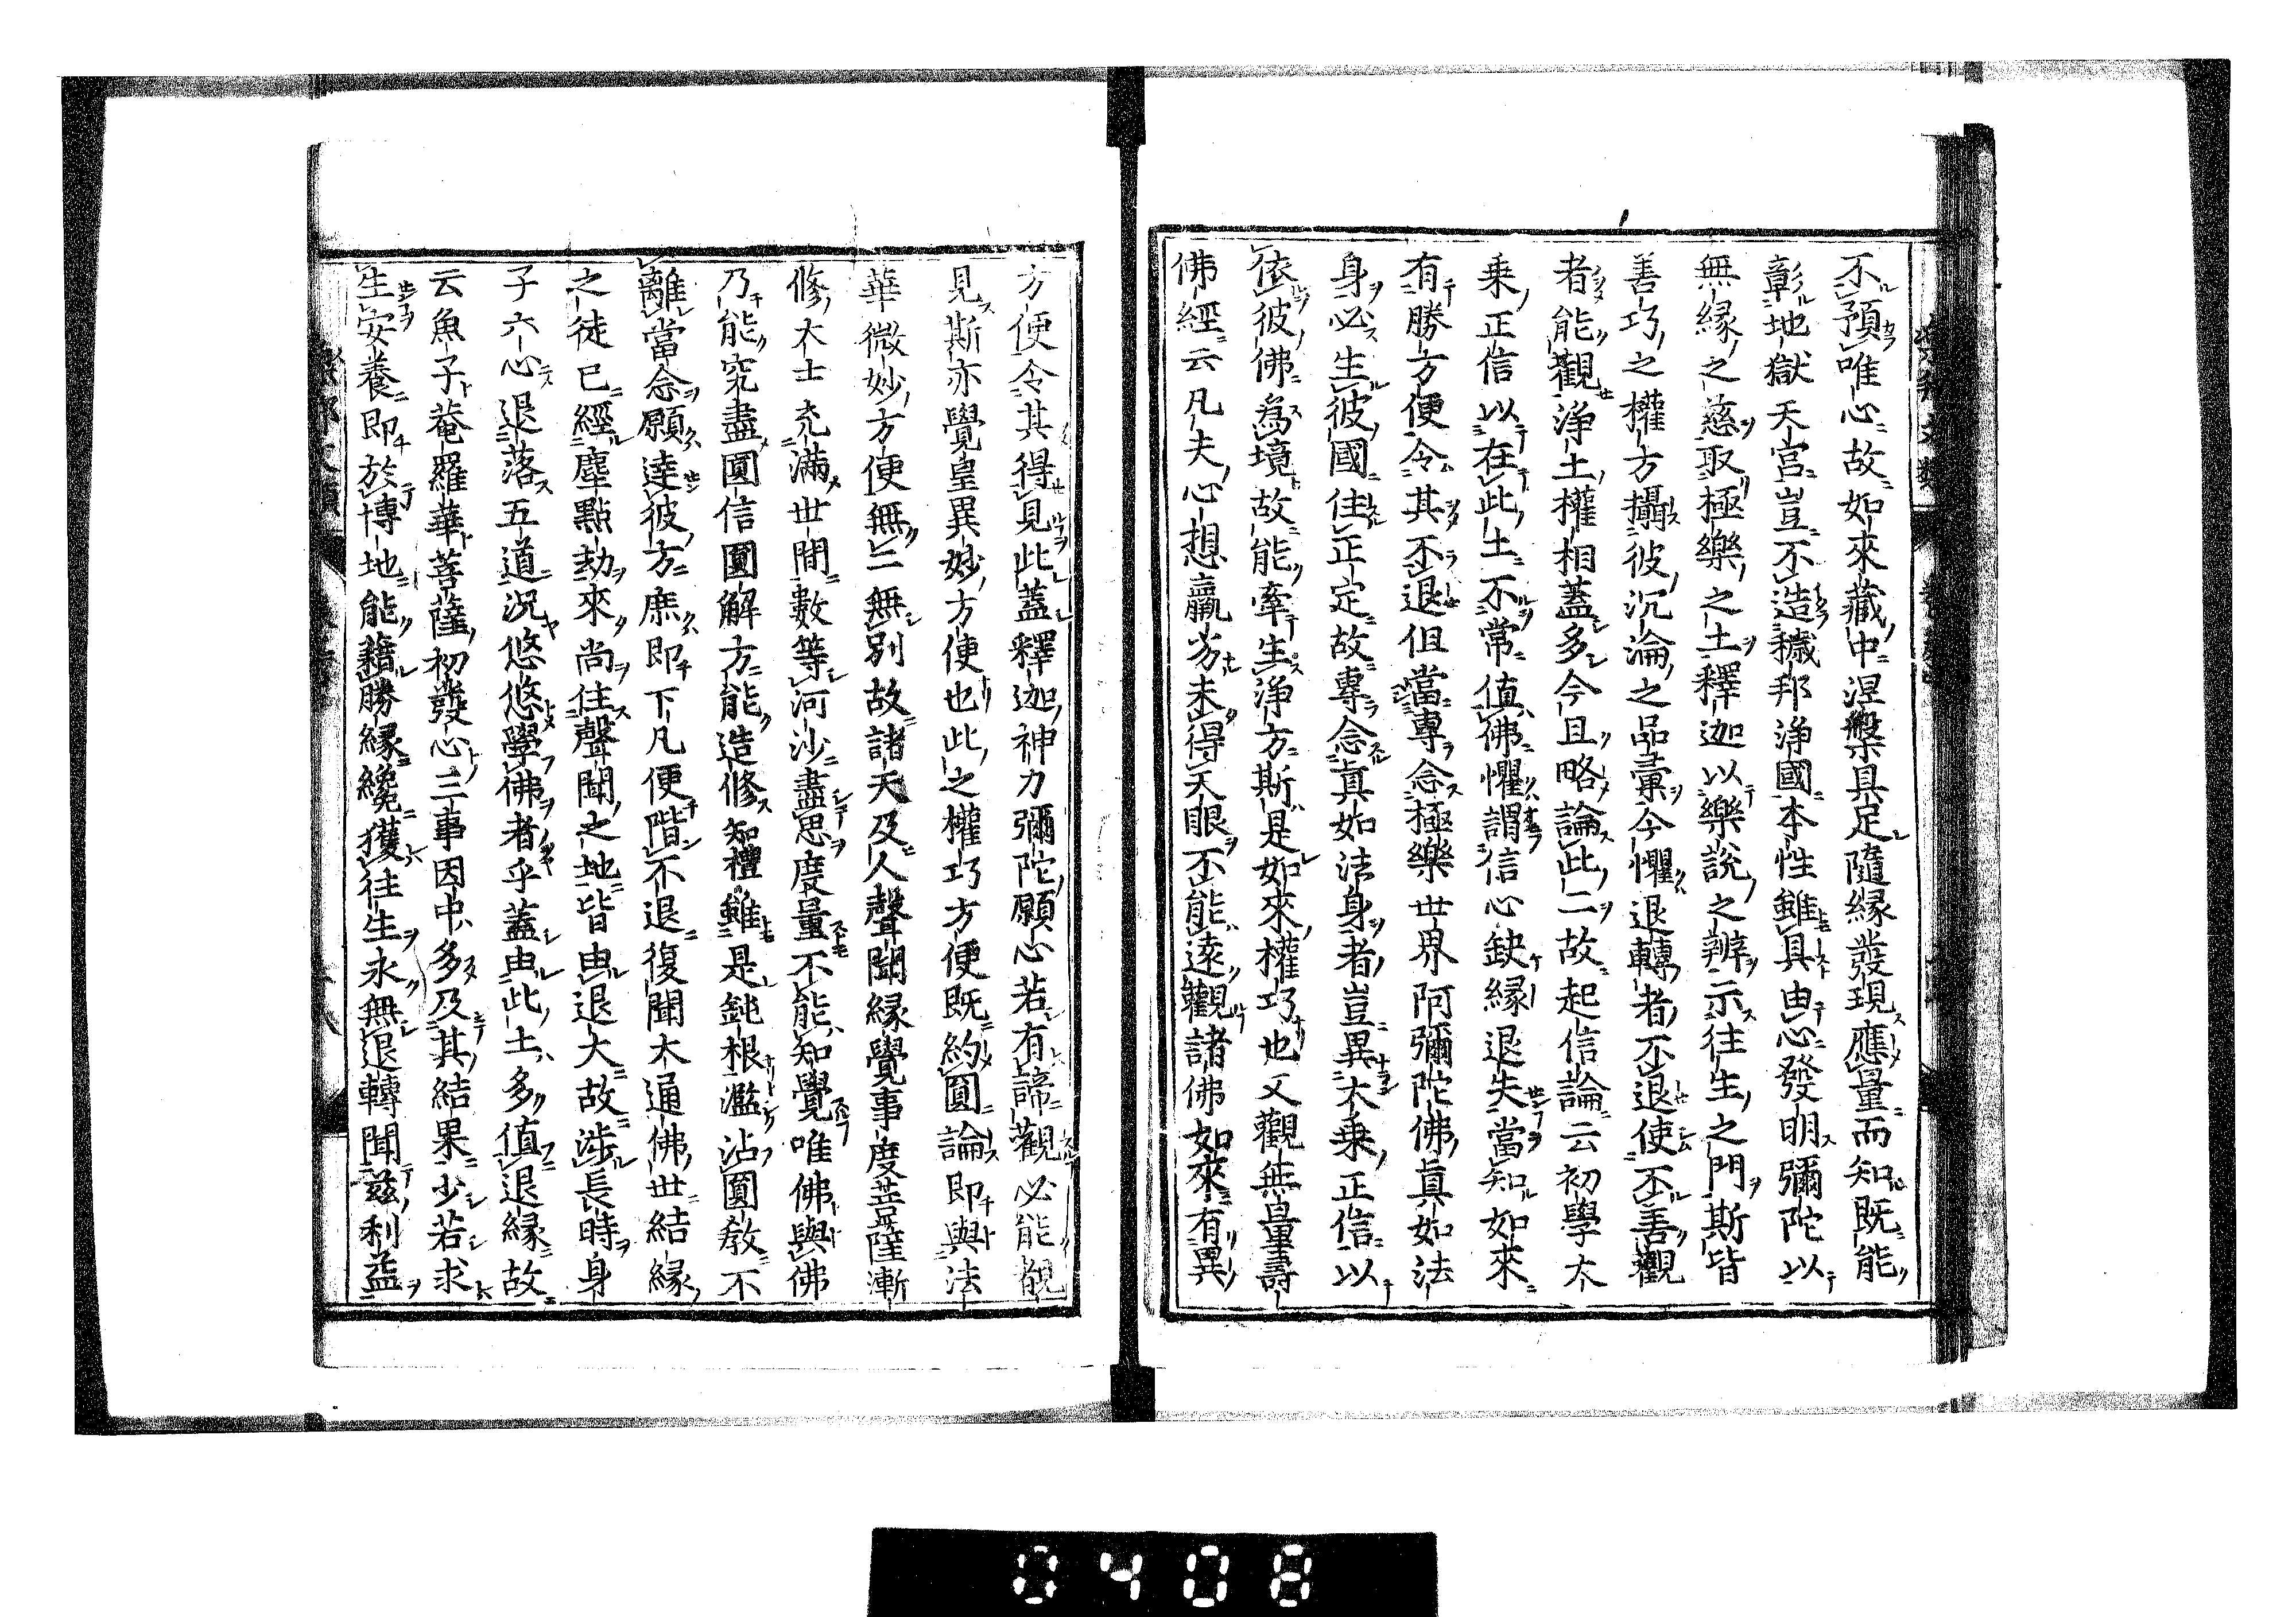 不預唯心故如來藏中涅槃具足隨緣發現應量而知既能
彰地獄天宮豈不造穢邦淨國本性雖具由心發明彌陀以
無緣之慈取極樂之土釋迦以樂說之辨示往生之門斯皆
善巧之權方攝彼沉淪之品彙今懼退轉者不退使不善觀
者能觀淨土權相蓋多今且略論此二故起信論云初學大
乘正信以在此土不常值佛懼謂信心缺緣退失當知如來
有勝方便令其不退但當專念極樂世界阿彌陀佛真如法
身必生彼國住正定故專念真如法身者豈異大乘正信以
依彼佛為境故能牽生淨方斯是如來權巧也又觀無量壽
佛經云凡夫心想羸劣未得天眼不能遠觀諸佛如來有異
方便令其得見此蓋釋迦神力彌陀願心若有諦觀必能覩
見斯亦覺皇異妙方便也此之權巧方便既約圓論即與法
華微妙方便無二無別故諸天及人聲聞緣覺事度菩薩漸
修大士充滿世間數等河沙盡思度量不能知覺唯佛與佛
乃能究盡圓信圓解方能造修知禮雖是鈍根濫沾圓教不
離當念願達彼方庶即下凡便階不退復聞大通佛世結緣
之徒已經塵點劫來尚住聲聞之地皆由退大故涉長時身
子六心退落五道況悠悠學佛者乎蓋由此土多值退緣故
云魚子菴羅華菩薩初發心三事因中多及其結果少若求
生安養即於博地能藉勝緣纔獲往生永無退轉聞茲利益
0408